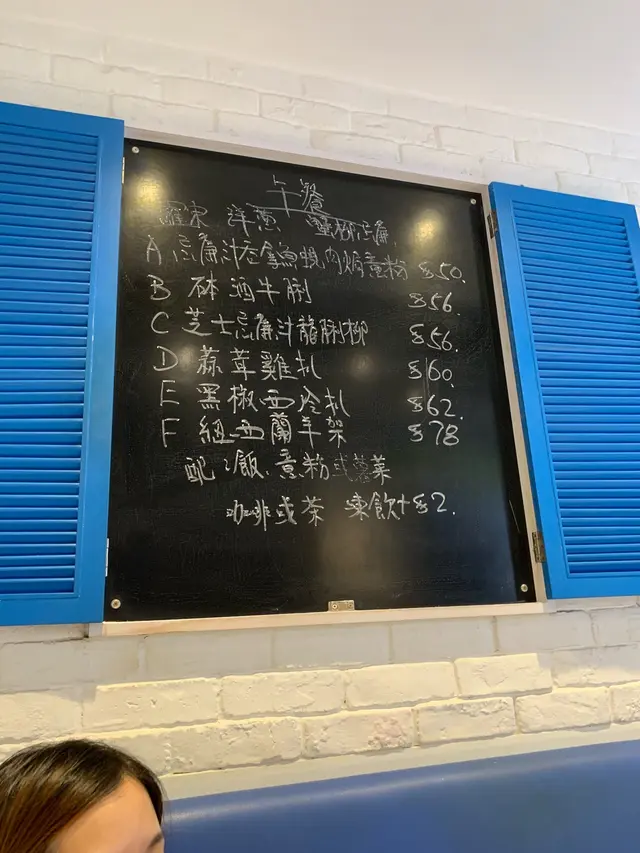 午餐
羅宋 洋蔥 蟹柳忌廉
A 忌廉汁吞拿魚蜆肉焗意粉 $50.
B 砵酒牛脷 $56.
C 芝士忌廉汁龍脷柳 $56.
D 蒜茸雞扒 $60.
E 黑椒西冷扒 $62.
F 紐西蘭羊架 $78
配:飯,意粉或薯菜
咖啡或茶 凍飲+$2.